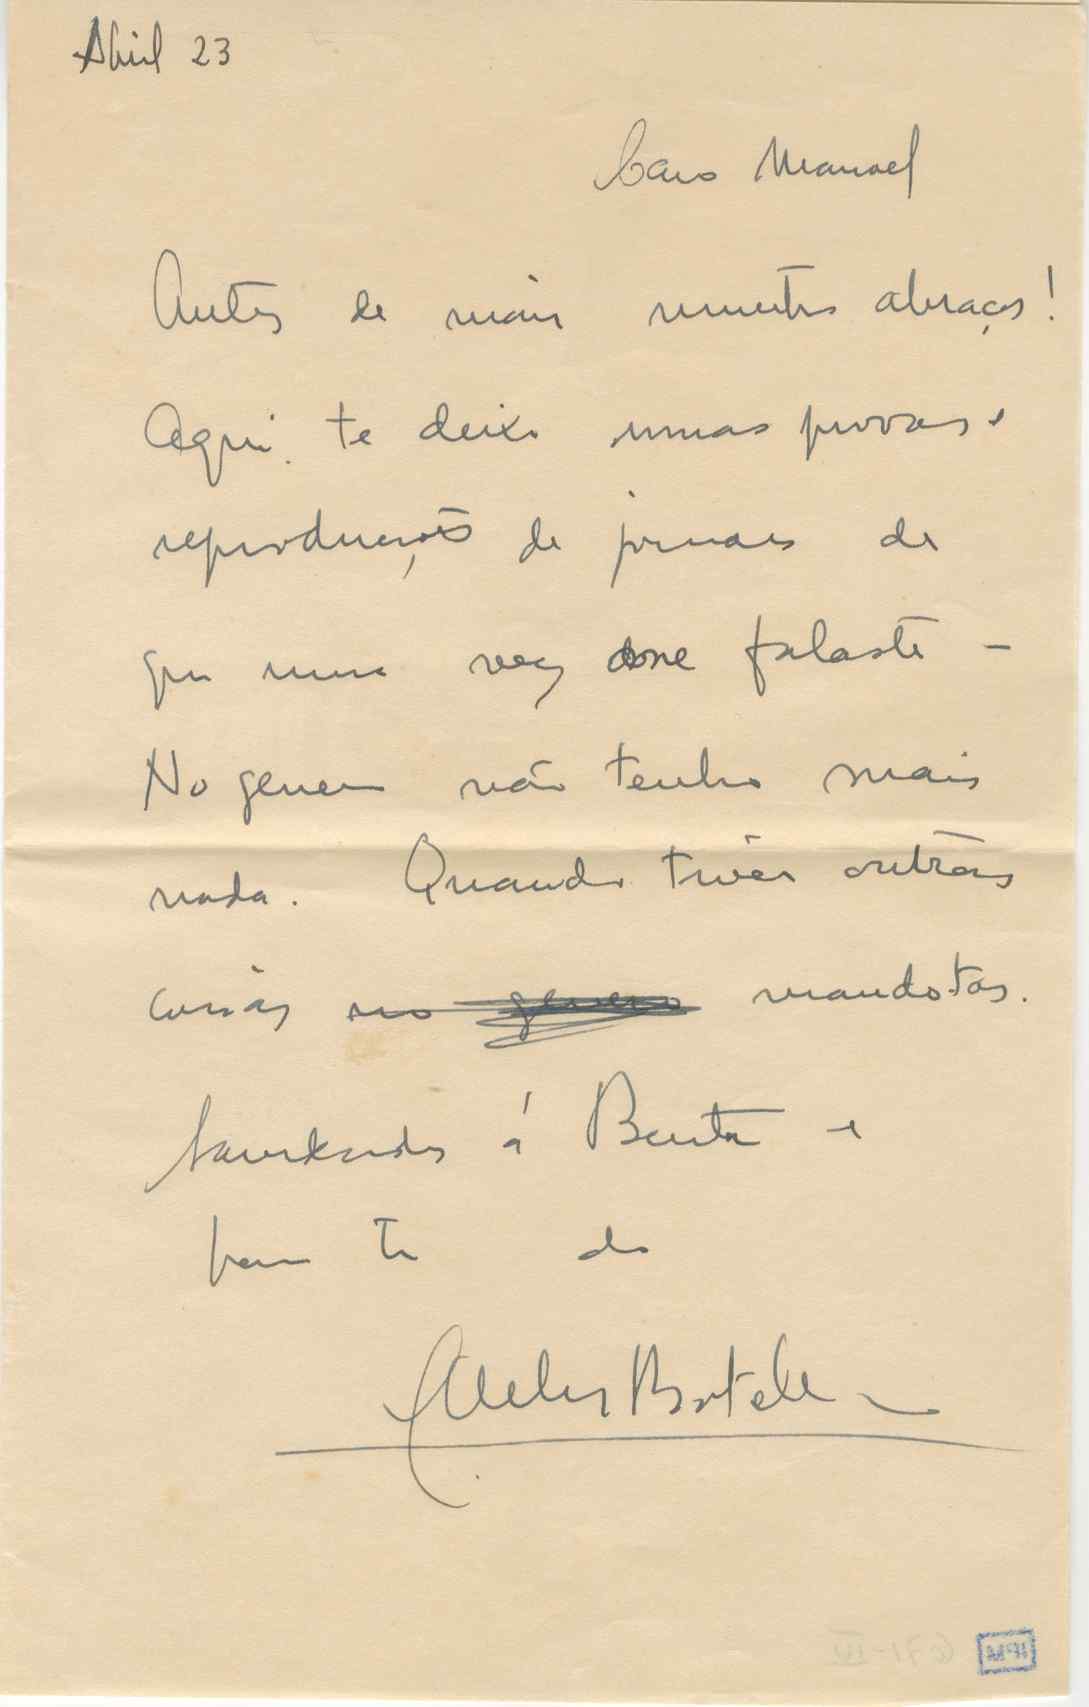 Abril 23
Caro Manoel
Antes de mais muitos abraços!
Aqui te deixo umas provas e
reproduções de jornais de
que uma vez me falaste –
No genero não tenho mais
nada. Quando tivér outras
coisas no genero mandotas.
Saudades á Benta e
para ti do
Botelho